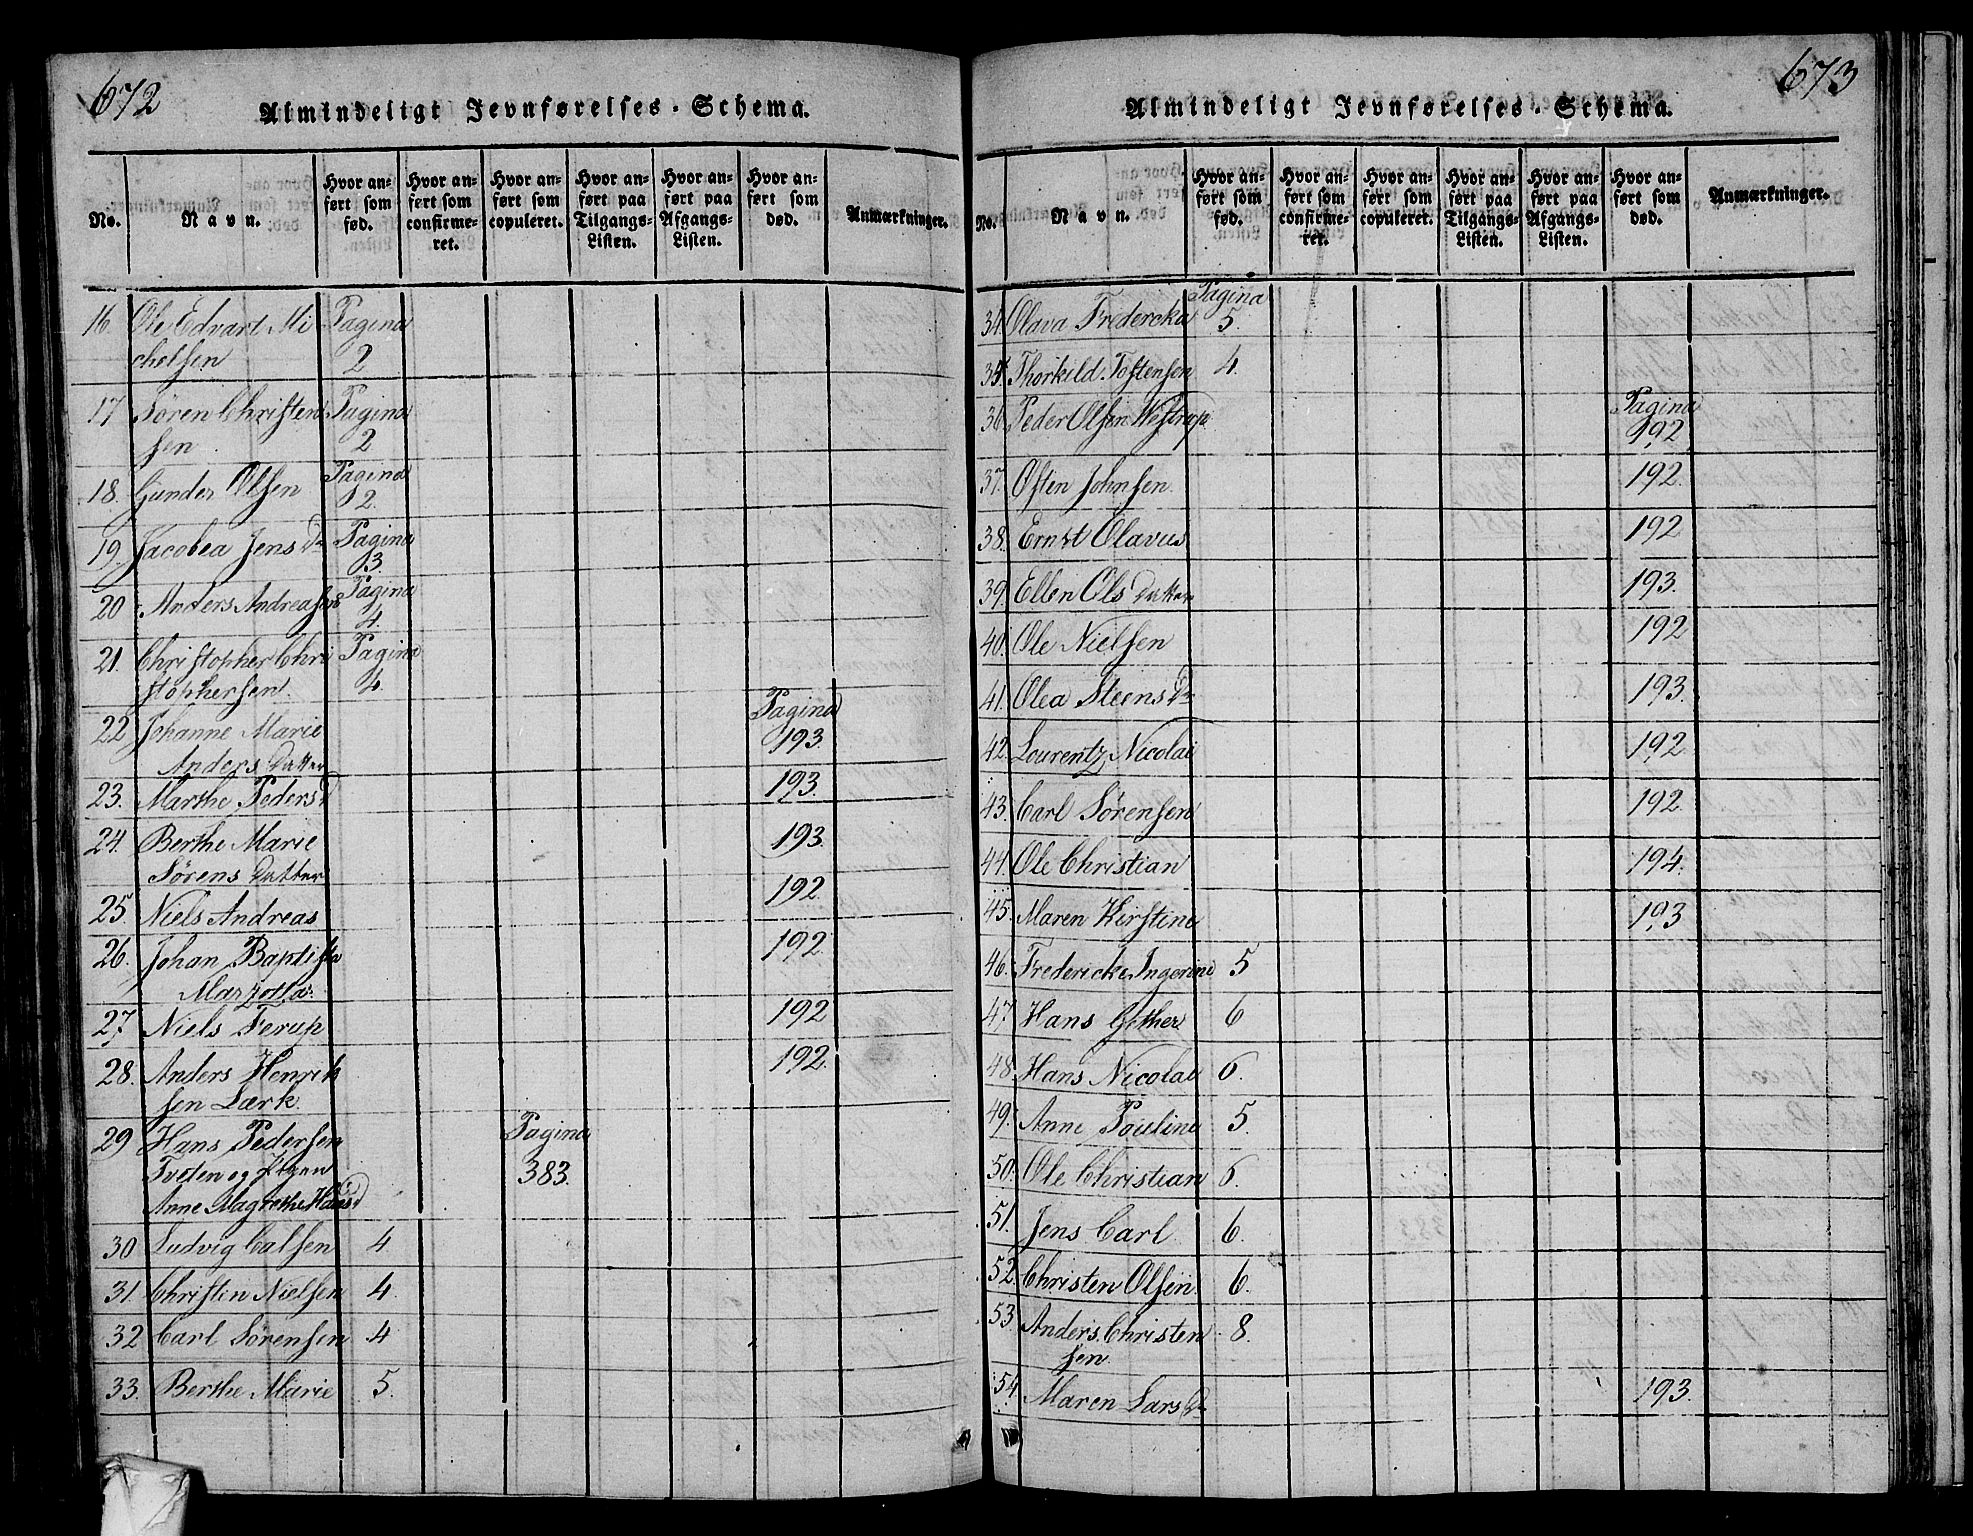 672
Almindeligt Jevnførelses-Schema.
No.
Navn.
Hvor anført som fød.
Hvor anført som confirmeret.
Hvor anført som copuleret.
Hvor anført paa Tilgangs-Listen.
Hvor anført paa Afgangs-Listen.
Hvor anført som død.
Anmærkninger.
16. Ole Edvart Mi Pagina
chelsen 2
17 Sören Christen Pagina
sen 2
18. Gunder Olsen Pagina 2.
19. Jacobea Jens Dr Pagina 3.
20 Anders Andreasen Pagina 4.
21. Christopher Chri Pagina
stophersen 4.
22 Johanne Marie Pagina
Anders Datter 193.
23. Marthe Peders D 193.
24. Berthe Marie 193.
Sörens Datter
25 Niels Andreas 192.
26. Johan Baptista 192.
Marzotta.
27. Niels Ferup 192
28. Anders Henrik 192.
sen Lærk.
29 Hans Pedersen Pagina
Tveten og Pigen 383.
Anne Magrethe Hans D
30 Ludvig Calsen 4
31. Christen Nielsen 4.
32 Carl Sörensen 4
33. Berthe Marie 5.
673
Almindeligt Jevnførelses-Schema.
No.
Navn.
Hvor anført som fød.
Hvor anført som confirmeret.
Hvor anført som copuleret.
Hvor anført paa Tilgangs-Listen.
Hvor anført paa Afgangs-Listen.
Hvor anført som død.
Anmærkninger.
Pagina
34 Olava Fredericka 5.
35 Thorkild Tostensen 4.
36. Peder Olsen Westrup Pagina 192
37. Osten Johnsen. 192.
38. Ernst Olavus 192
39. Ellen Ols Datter 193.
40. Ole Nielsen 192
41. Olea Steens Dr 193.
42. Lourentz Nicolai 192
43. Carl Sörensen 192.
44. Ole Christian 194.
45. Maren Kirstine 193
46. Fredericke Ingerine 5
47 Hans Gether 6
48 Hans Nicolai 6.
49. Anne Pouline 5.
50. Ole Christian 6.
51. Jens Carl 6.
52. Christen Olsen. 6.
53. Anders Christen 8.
sen.
54. Maren Lars Dr 193.